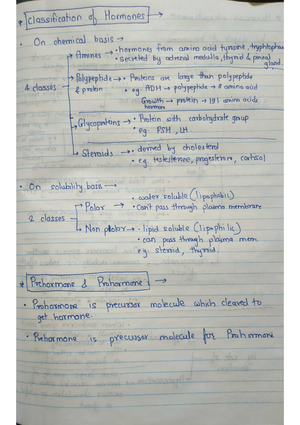 * Classification of Hormones →
• On chemical basis →
4 classes
Amines → • hormones from amino acid tyrosine, tryptophan
• Secreted by adrenal medulla, thyroid & pineal gland.
Polypeptide & protein → • Proteins are large than polypeptide
• eg. ADH → polypeptide → 8 amino acid
Growth hormone → protein → 191 amino acids
Glycoproteins → • Protein with carbohydrate group
• eg. FSH, LH
Steroids → • derived by cholesterol
• e.g. testosterone, progesterone, cortisol
• On solubility base →
2 classes
Polar → • water soluble (lipophobic)
• Can't pass through plasma membrane
Non polar → • lipid soluble (lipophilic)
• can pass through plasma mem
e.g. steroid, thyroid.
* Prehormone & Prohormone →
• Prohormone is precursor molecule which cleaved to
get hormone.
• Prehormone is precursor molecule for Prohormone